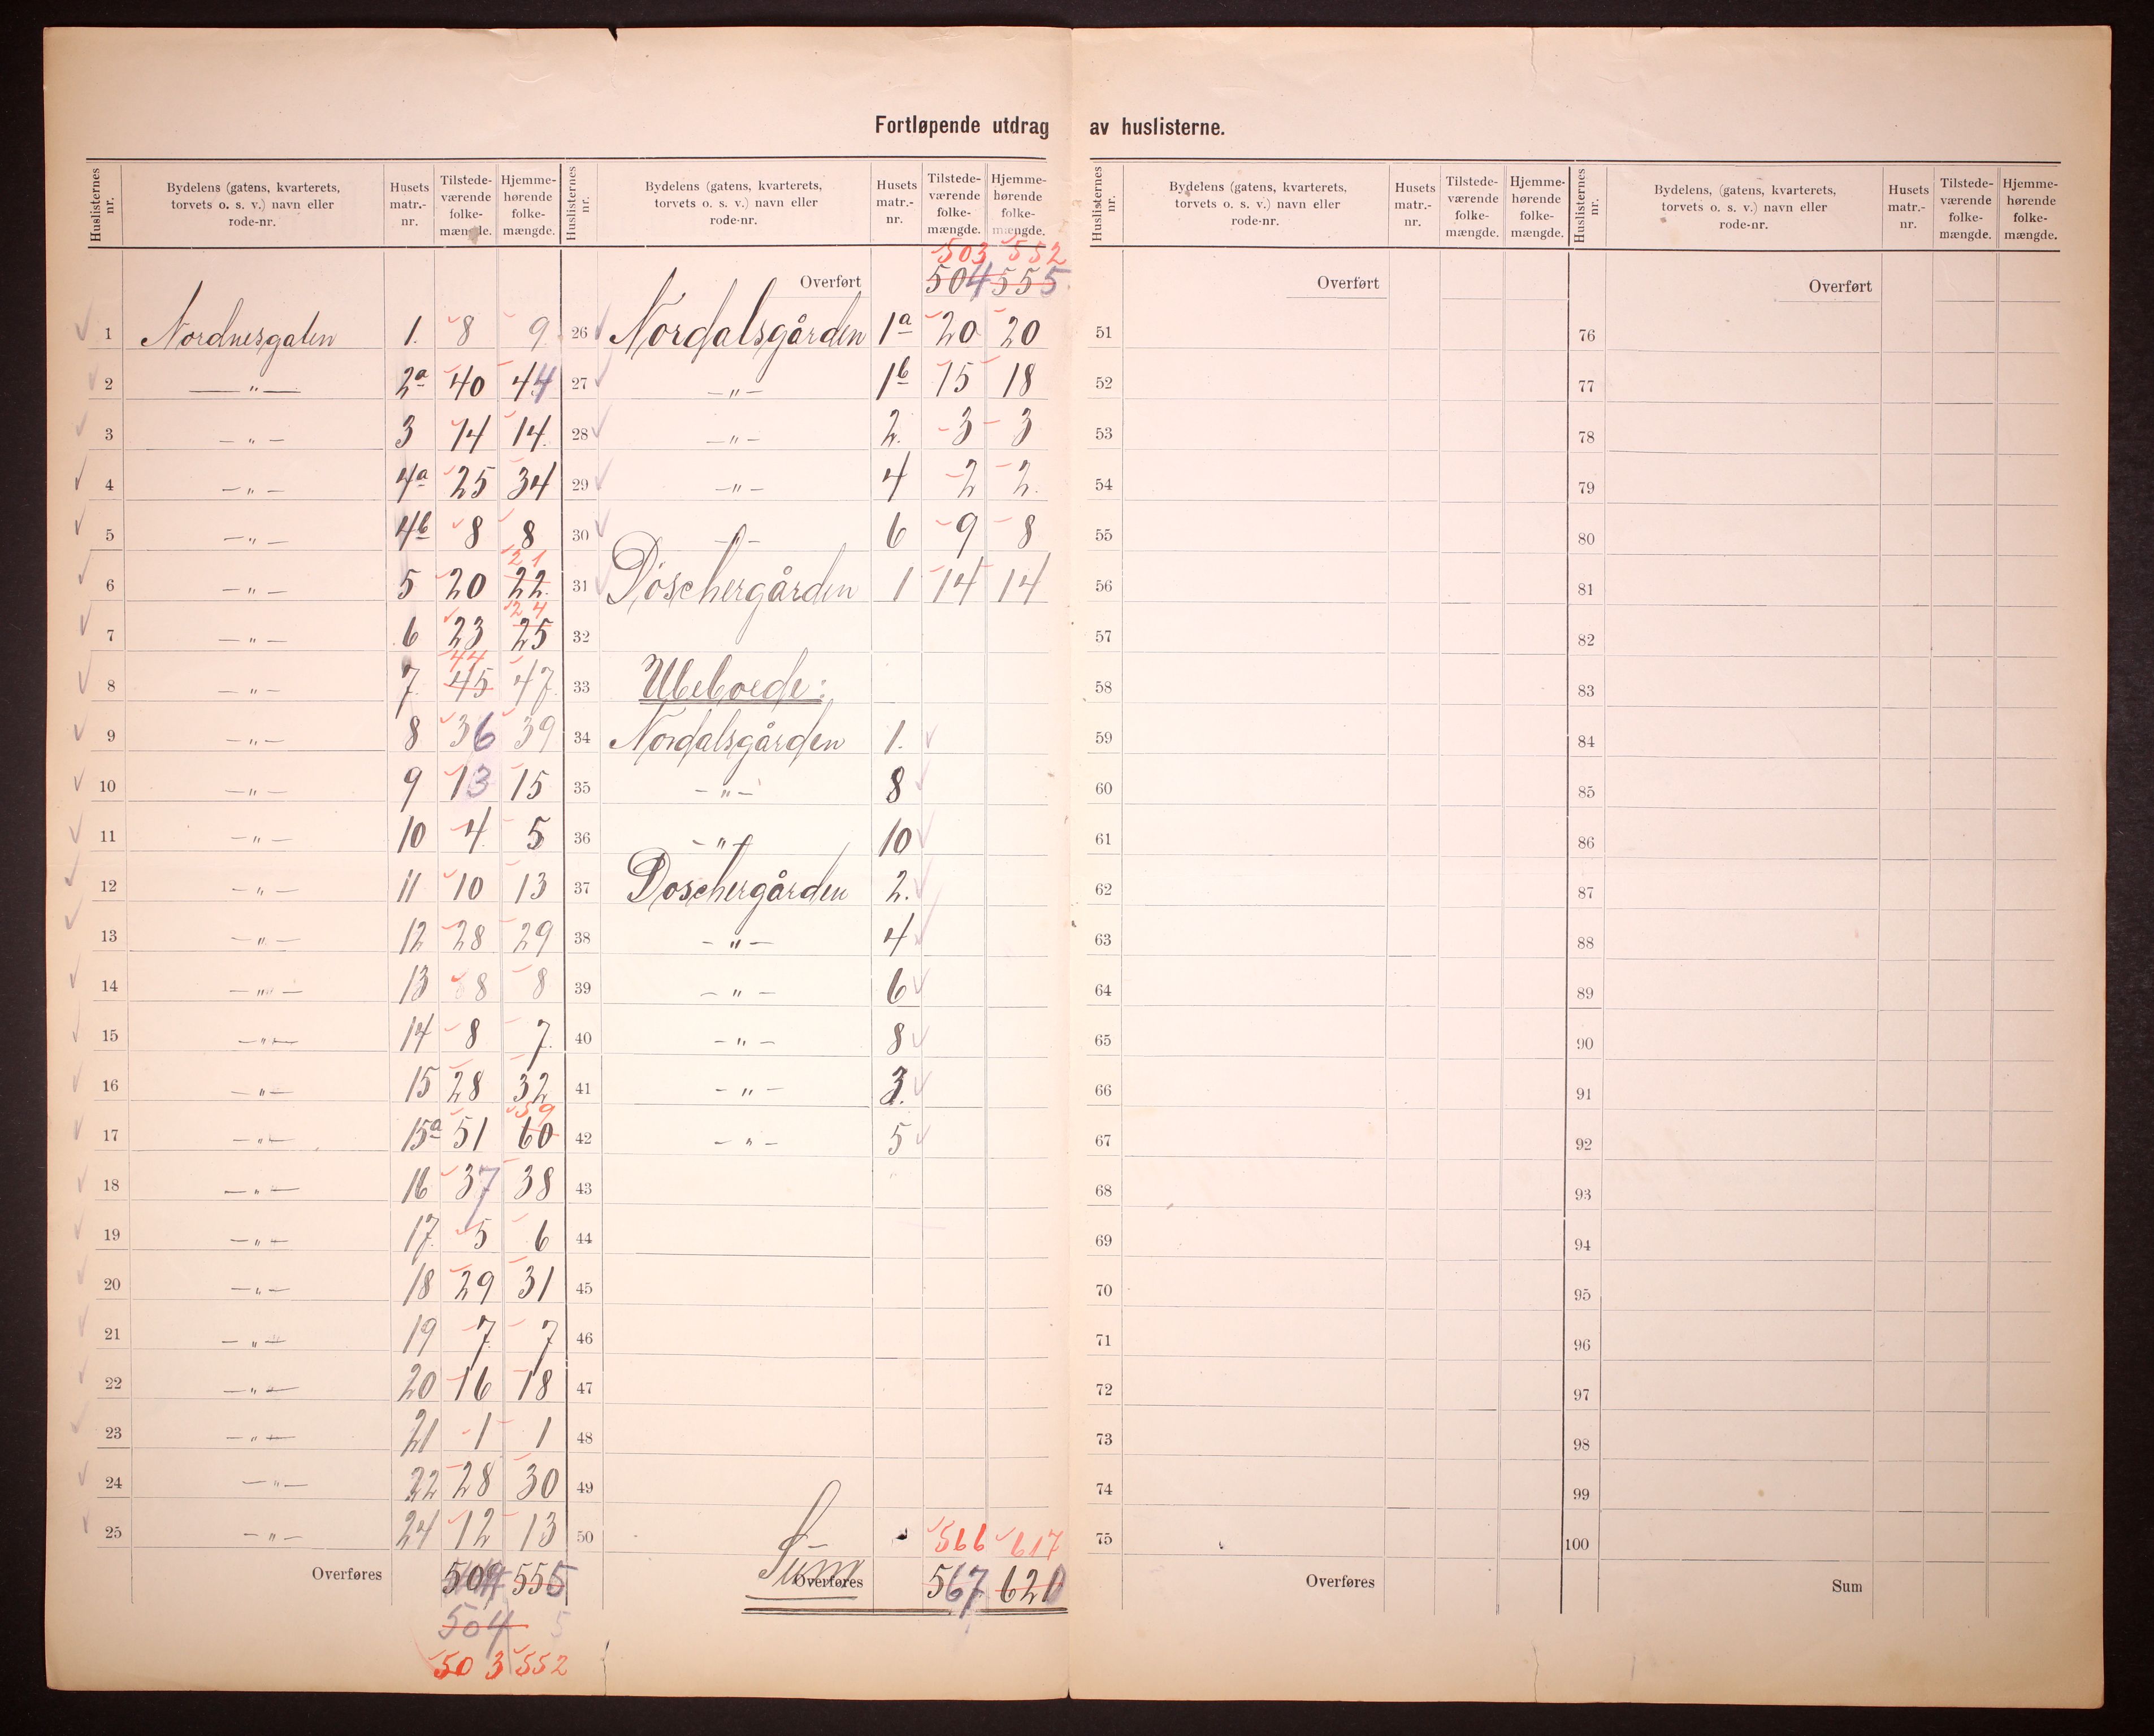 Fortløpende utdrag av huslisterne.
Huslisternes nr. | Bydelens (gatens, kvarterets, torvets o. s. v.) navn eller rode-nr. | Husets matr.-nr. | Tilstede-værende folke-mængde. | Hjemme-hørende folke-mængde.
1 Nordnesgaten 1. 8 9
2 —"— 2a 40 44
3 —"— 3 14 14.
4 —"— 4a 25 34
5 —"— 4b 8 8
6 —"— 5 20 22. 21
7 —"— 6 23 25 24
8 —"— 7. 45 44 47.
9 —"— 8 36 39
10 —"— 9 13 15
11 —"— 10 4 5
12 —"— 11 10 13
13 —"— 12 28 29
14 —"— 13 8 8
15 —"— 14 8 7.
16 —"— 15 28 32
17 —"— 15a 51 60 59
18 —"— 16 37 38
19 —"— 17. 5 6
20 —"— 18 29 31
21 —"— 19 7 7
22 —"— 20 16 18
23 —"— 21 1 1
24 —"— 22 28 30
25 —"— 24 12 13
Overføres 555
504 5
503 552
Huslisternes nr. | Bydelens (gatens, kvarterets, torvets o. s. v.) navn eller rode-nr. | Husets matr.-nr. | Tilstede-værende folke-mængde. | Hjemme-hørende folke-mængde.
503 552
Overført 504 555
26 Nordalsgården 1a 20 20
27 —"— 1b 15 18
28 —"— 2. 3 3
29 —"— 4 2 2.
30 —"— 6 9 8
31 Döschergården 1 14 14
32
33 Ubeboede:
34 Nordalsgården 1.
35 —"— 8
36 —"— 10
37 Doschergården 2.
38 —"— 4
39 —"— 6
40 —"— 8
41 —"— 3.
42 —"— 5
43
44
45
46
47
48
49
50 566 617
Sum Overføres 567 620
Huslisternes nr. | Bydelens (gatens, kvarterets, torvets o. s. v.) navn eller rode-nr. | Husets matr.-nr. | Tilstede-værende folke-mængde. | Hjemme-hørende folke-mængde.
Overført
51
52
53
54
55
56
57
58
59
60
61
62
63
64
65
66
67
68
69
70
71
72
73
74
75
Overføres
Huslisternes nr. | Bydelens, (gatens, kvarterets, torvets o. s. v.) navn eller rode-nr. | Husets matr.-nr. | Tilstede-værende folke-mængde. | Hjemme-hørende folke-mængde.
Overført
76
77
78
79
80
81
82
83
84
85
86
87
88
89
90
91
92
93
94
95
96
97
98
99
100
Sum